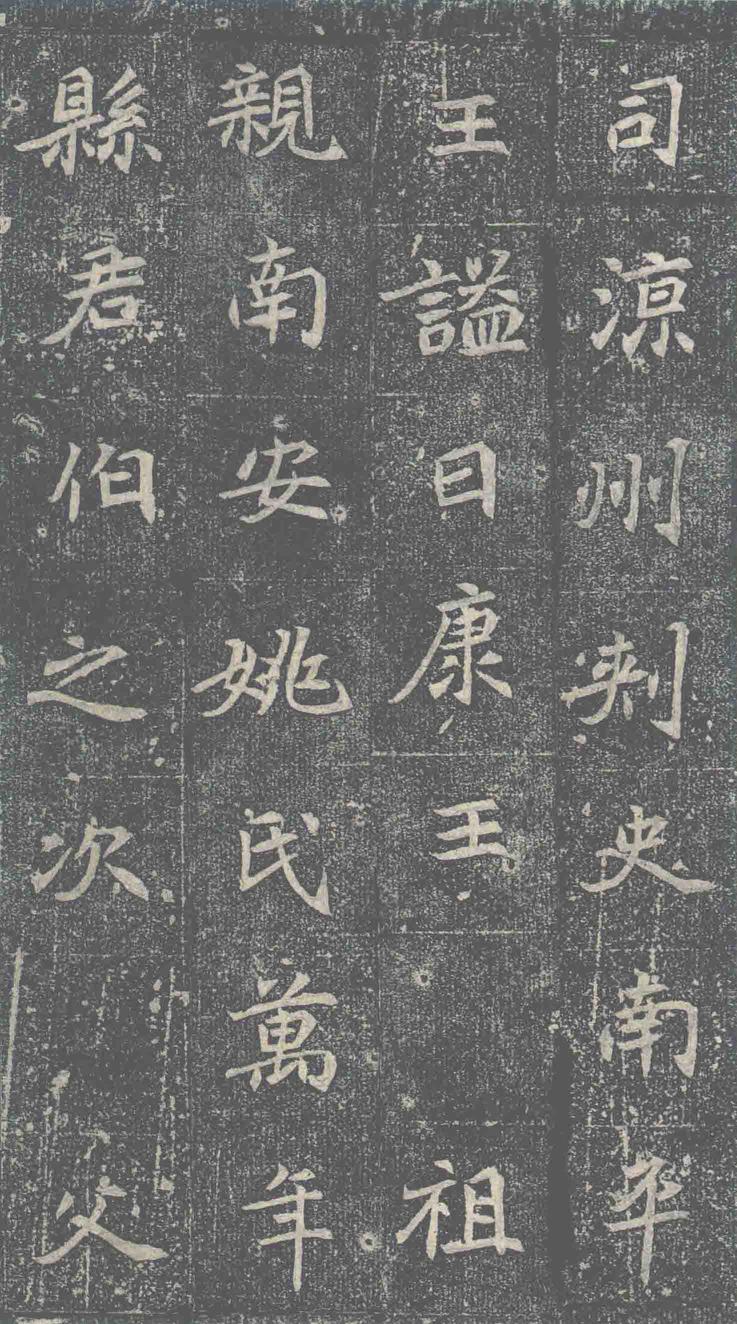 司涼州刺史南平
王謚曰康王祖
親南安姚氏萬年
縣君伯之次父